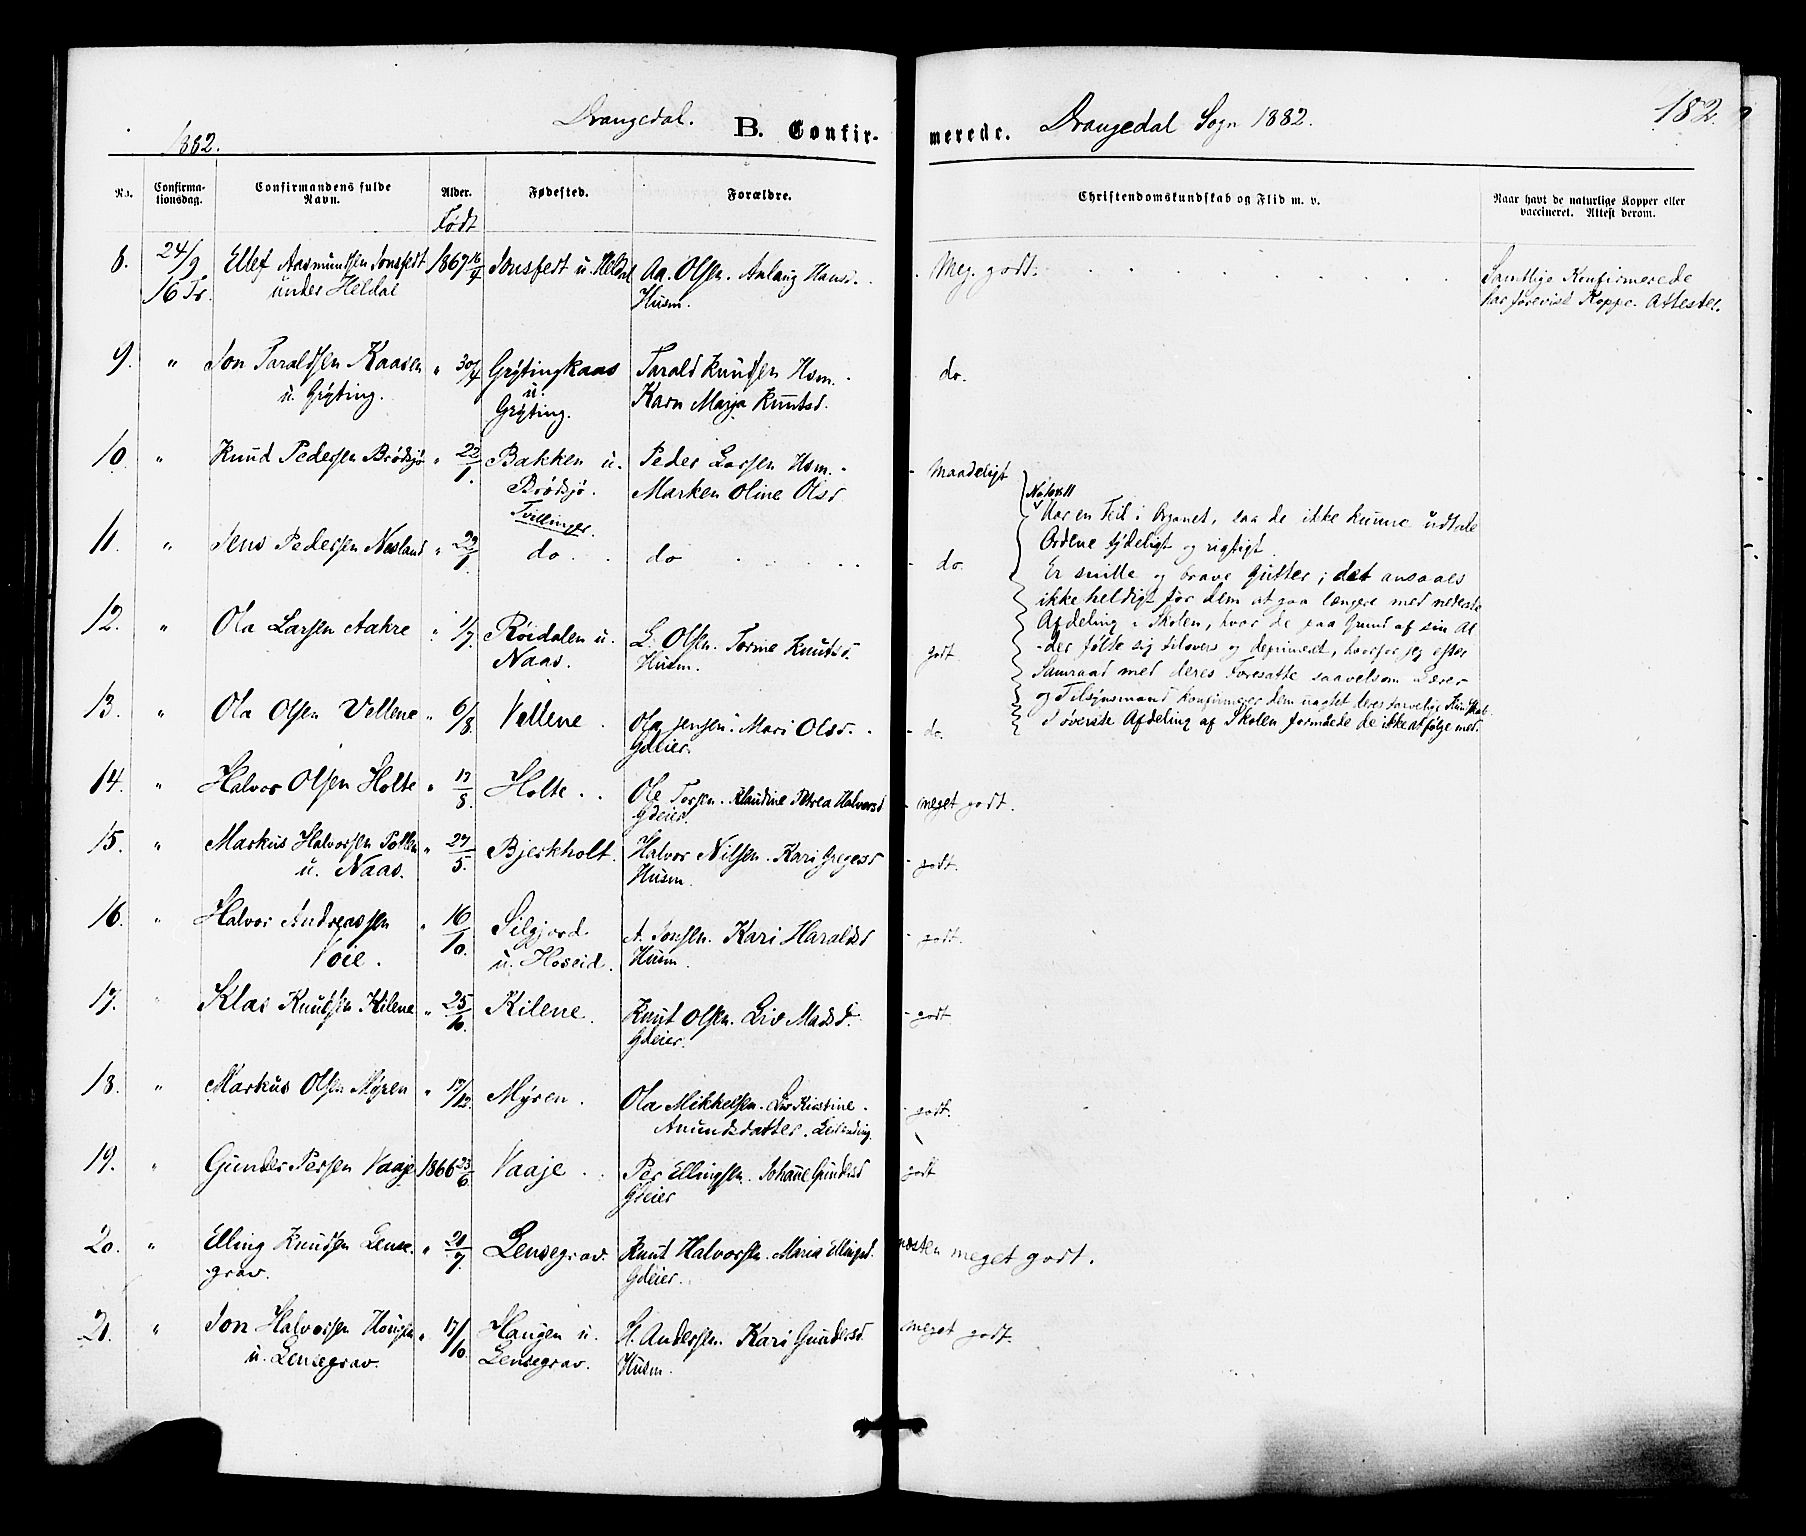 Drangedal. B. Confir-
1882.
merede. Drangedal Sogn 1882.
182.
No.
Confirma-
tionsdag.
Confirmandens fulde
Navn.
Alder.
Født
Fødested.
Forældre.
Christendomskundskab og Flid m. v.
Naar havt de naturlige Kopper eller
vaccineret. Attest derom.
8. 24/9 Ellef Aasmundsen Jonsfedt 1867 16/4 Jonsfedt u. Heldal Aa. Olsen. Aslaug Hansd. Meg. godt.
16 Tr. under Heldal Husm.
Samtlige Konfirmerede
har forevist Koppe Attester.
9. " Jon Taraldsen Kaasen " 30/4 Grytingkaas Tarald Knudsen Hsm. do.
u. Gryting. u. Gryting. Karn Marja Knutsd.
10. " Knud Pedersen Brødsjø " 22/1. Bakken u. Peder Larsen Hsm. Maadeligt
Brødsjø. Marken Oline Olsd
Tvillinger.
11. " Jens Pedersen Nesland " 22/1 do do do.
Har en Feil i Organet, saa de ikke kunne udtale
Ordene tydeligt og rigtigt.
Er snille og brave Gutter; det ansaaes
ikke heldigt for dem at gaa længere med nederste
Afdeling i Skolen, hvor de paa Grund af sin Al
-der følte sig tilovers og deprimeret, hvorfor jeg efter
Samraad med deres Foresatte saavelsom Lærer
og Tilsynsmand konfirmerer dem uagtet deres tarvelige Kundskab.
I øverste Afdeling af Skolen formaaede de ikke at følge med.
12. " Ola Larsen Aakre " 1/7 Röidalen u. L. Olsen. Torine Knutsd. godt
Naas. Husm.
13. " Ola Olsen Vellene " 6/8 Vellene. Ola Jensen. Mari Olsd. do.
Gdeier.
14. " Halvor Olsen Holte " 17/5. Holte. Ole Torsen. Klaudine Petrea Halvorsd meget godt.
Gdeier.
15. " Markus Halvorsen Pollen " 27/5. Bjerkholt. Halvor Nilsen. Kari Gregersd godt.
u. Naas. Husm.
16. " Halvor Andreassen " 16/10. Silgjord. A. Jonsen. Kari Haraldsd godt.
Voie. u. Hoseid. Husm.
17. " Klas Knutsen Kilene " 25/10. Kilene. Knut Olsen. Liv Madsd. godt
Gdeier.
18. " Markus Olsen Myren " 17/12. Myren. Ola Mikkelsen. Liv Kirstine godt.
Anundsdatter. Leilending.
19. " Gunder Persen Vaaje 1866 23/6 Vaaje Per Ellingsen. Johanne Gundersd godt
Gdeier
20. " Elling Knudsen Lense- " 21/7. Lensegrav. Knut Halvorsen. Maria Ellingsd. næsten meget godt.
grav. Gdeier.
21. " Jon Halvorsen Hougen " 17/10. Haugen u. H. Andersen. Kari Gundersd. meget godt.
u. Lensegrav. Lensegrav. Husm.